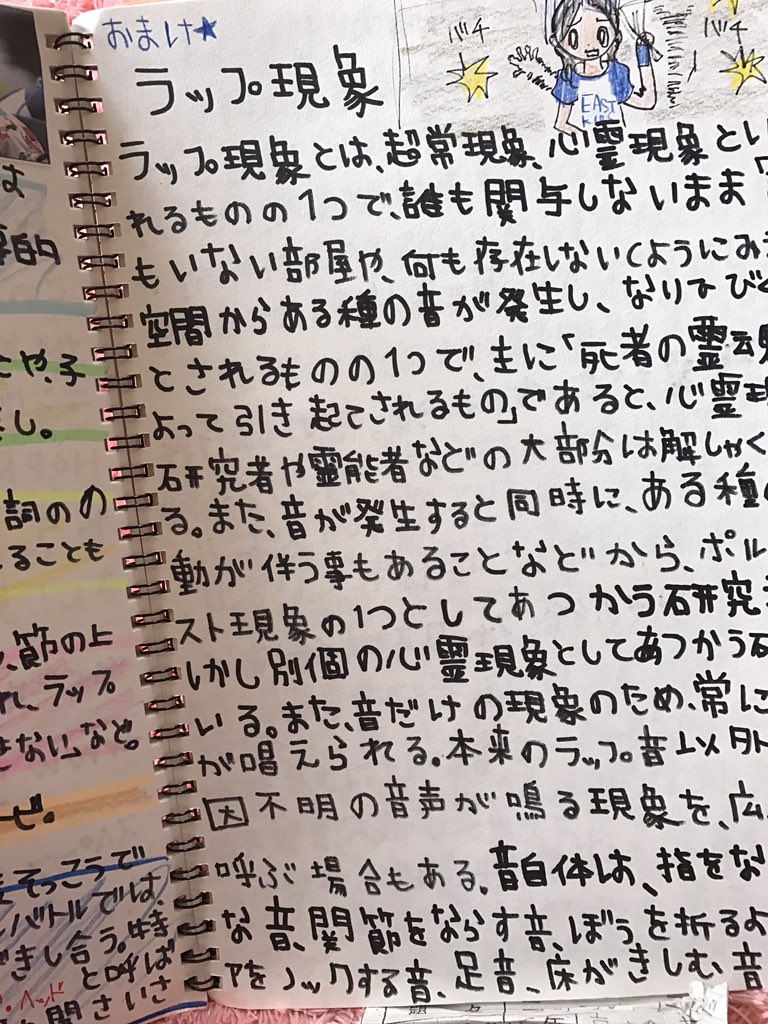 おまけ★
ラップ現象
バチ
バチ
EAST
ラップ現象とは、超常現象、心霊現象とい
れるものの1つで、誰も関与しないまま
もいない部屋や、何も存在しない(ようにみ
空間からある種の音が発生し、なりひび
とされるものの1つで、主に「死者の霊魂
よって引き起こされるもの」であると、心霊現
研究者や霊能者などの大部分は解しゃく
る。また、音が発生すると同時に、ある種の
動が伴う事もあることなどから、ポル
スト現象の1つとしてあつかう研究
しかし別個の心霊現象としてあつかう研
いる。また、音だけの現象のため、常に
が唱えられる。本来のラップ音以外
因不明の音声が鳴る現象を、広
呼ぶ場合もある。音自体は、指をな
な音、関節をならす音、ぼうを折るよ
アをノックする音、足音、床がきしむ音
は
的
とや、子
し。
詞のの
ることも
、節の上
れ、ラップ
さない」など。
ビ。
そっこうで
バトルでは、
きし合う。時
と呼ば